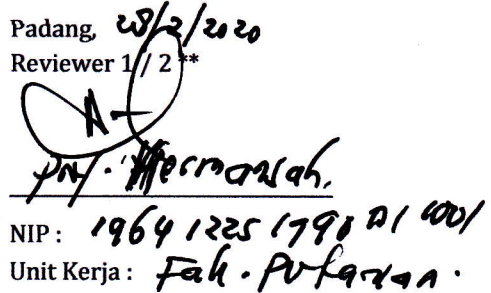 Padang, 28/2/2020
Reviewer 1 / 2 **
Prof. Hermansah.
NIP : 19641225 1990 01 1001
Unit Kerja : Fak. Pertanian.